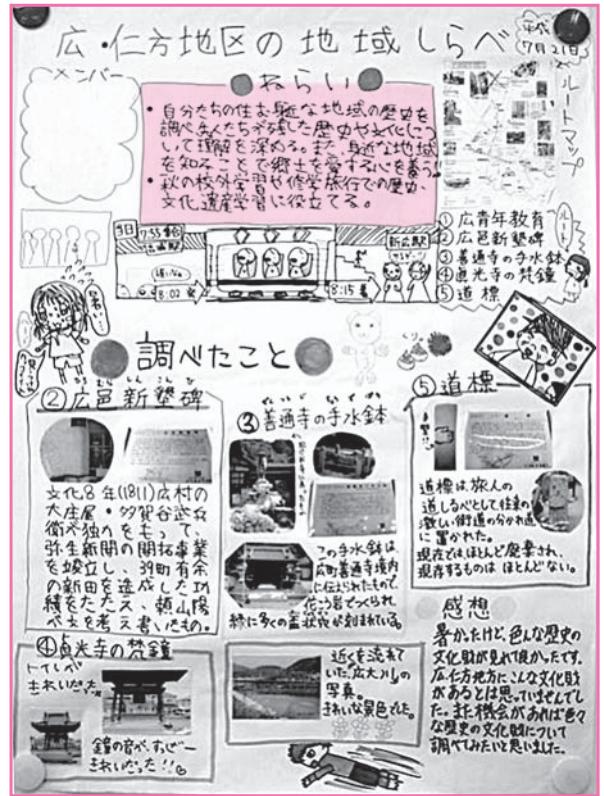 広・仁方地区の地域しらべ
平成
7月21日
メンバー
ねらい
・自分たちの住む身近な地域の歴史を
調べ、先人たちが残した歴史や文化につ
いて理解を深める。また、身近な地域
を知ることで郷土を愛する心を養う。
・秋の校外学習や修学旅行での歴史、
文化遺産学習に役立てる。
ルートマップ
ルート
①広青年教育
②広邑新墾碑
③善通寺の手水鉢
④真光寺の梵鐘
⑤道標
7:55集合
8:02発
新広駅
8:15着
暑い…
調べたこと
②広邑新墾碑
文化8年(1811)広村の
大庄屋・多賀谷武兵
衛が独力をもって、
弥生新開の開拓事業
を竣立し、39町有余
の新田を造成した功
績をたたえ、頼山陽
が文を考え書いたもの。
③善通寺の手水鉢
この手水鉢は、
広町善通寺境内
に伝えられたもので
花こう岩でつくられ、
縁に多くの盃状穴が刻まれている。
⑤道標
道標は旅人の
道しるべとして往来の
激しい街道の分かれ道
に置かれた。
現在では、ほとんど廃棄され、
現存するものはほとんどない。
④真光寺の梵鐘
トイレが
きれいだった
鐘の音が、すっごー
きれいだった!!
近くを流れて
いた、広大川の
写真。
きれいな景色でした。
感想
暑かったけど、色んな歴史の
文化財が見れて良かったです。
広、仁方地方にこんな文化財
があるとは思っていませんでし
た。また機会があれば色々
な歴史の文化財について
調べてみたいと思いました。